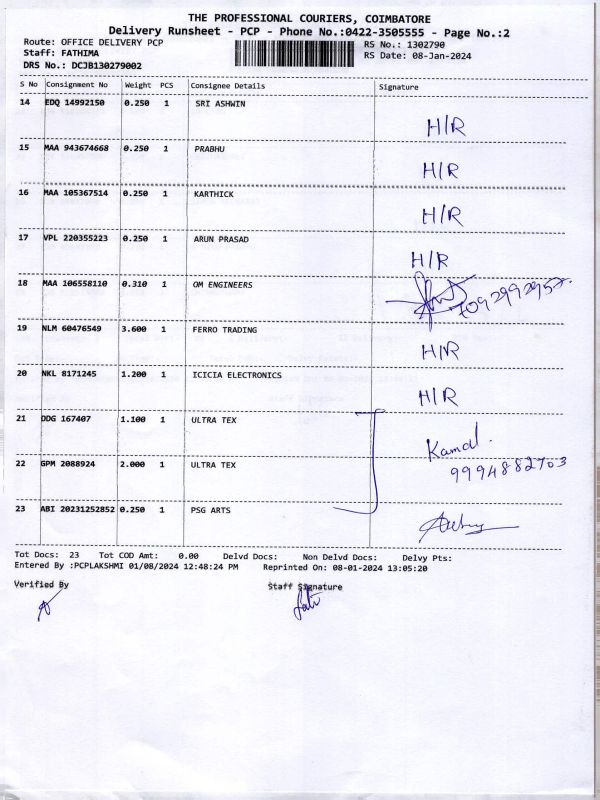 THE PROFESSIONAL COURIERS, COIMBATORE
Delivery Runsheet - PCP - Phone No.:0422-3505555 - Page No.:2
Route: OFFICE DELIVERY PCP RS No.: 1302790
Staff: FATHIMA RS Date: 08-Jan-2024
DRS No.: DCJB130279002
S No Consignment No Weight PCS Consignee Details Signature
14 EDQ 14992150 0.250 1 SRI ASHWIN
H/R
15 MAA 943674668 0.250 1 PRABHU
H/R
16 MAA 105367514 0.250 1 KARTHICK
H/R
17 VPL 220355223 0.250 1 ARUN PRASAD
H/R
18 MAA 106558110 0.310 1 OM ENGINEERS
7092992957
19 NLM 60476549 3.600 1 FERRO TRADING
H/R
20 NKL 8171245 1.200 1 ICICIA ELECTRONICS
H/R
21 DDG 167407 1.100 1 ULTRA TEX
Kamal.
22 GPM 2088924 2.000 1 ULTRA TEX
9994882703
23 ABI 20231252852 0.250 1 PSG ARTS
Tot Docs: 23 Tot COD Amt: 0.00 Delvd Docs: Non Delvd Docs: Delvy Pts:
Entered By :PCPLAKSHMI 01/08/2024 12:48:24 PM Reprinted On: 08-01-2024 13:05:20
Verified By Staff Signature